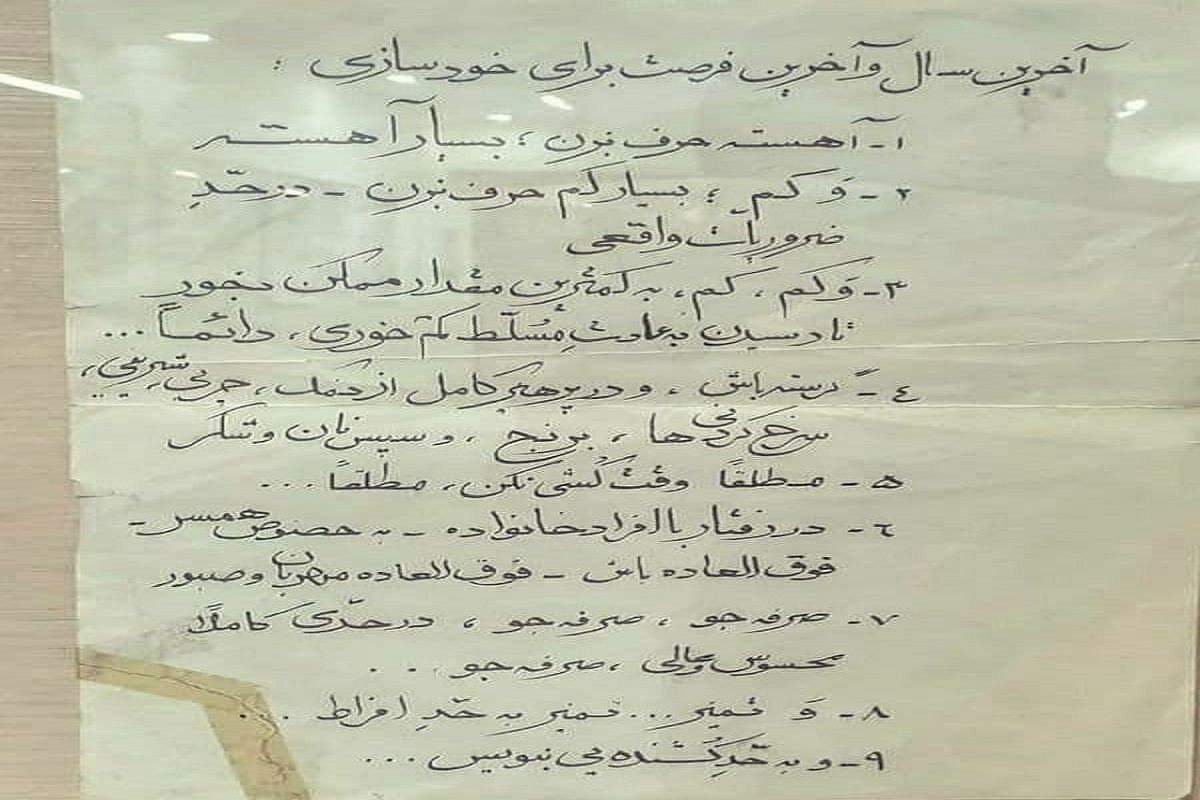 آخرین سال و آخرین فرصت برای خودسازی :
۱- آهسته حرف بزن ؛ بسیار آهسته
۲- وَ کم ؛ بسیار کم حرف بزن - در حدِّ
ضروریات واقعی
۳- وَ کم ، کم ، به کمترین مقدار ممکن بخور
تا رسیدن به عادتِ مُسلّط کم خوری ، دائماً ...
٤- گرسنه باش ، و در پرهیز کامل از نمک ، چربی ، شیرینی ،
سرخ کردنی ها ، برنج ، و سپس نان و شکر
۵- مطلقاً وقت کُشی نکن ، مطلقاً ...
٦- در رفتار با افراد خانواده - به خصوص همسر -
فوق العاده باش - فوق العاده مهربان و صبور
۷- صرفه جو ، صرفه جو ، در حدّی کاملاً
محسوس و عالی ، صرفه جو ...
۸- وَ تمیز ... تمیز به حدِّ افراط ...
۹- و به حدِّ کُشنده یی بنویس ...